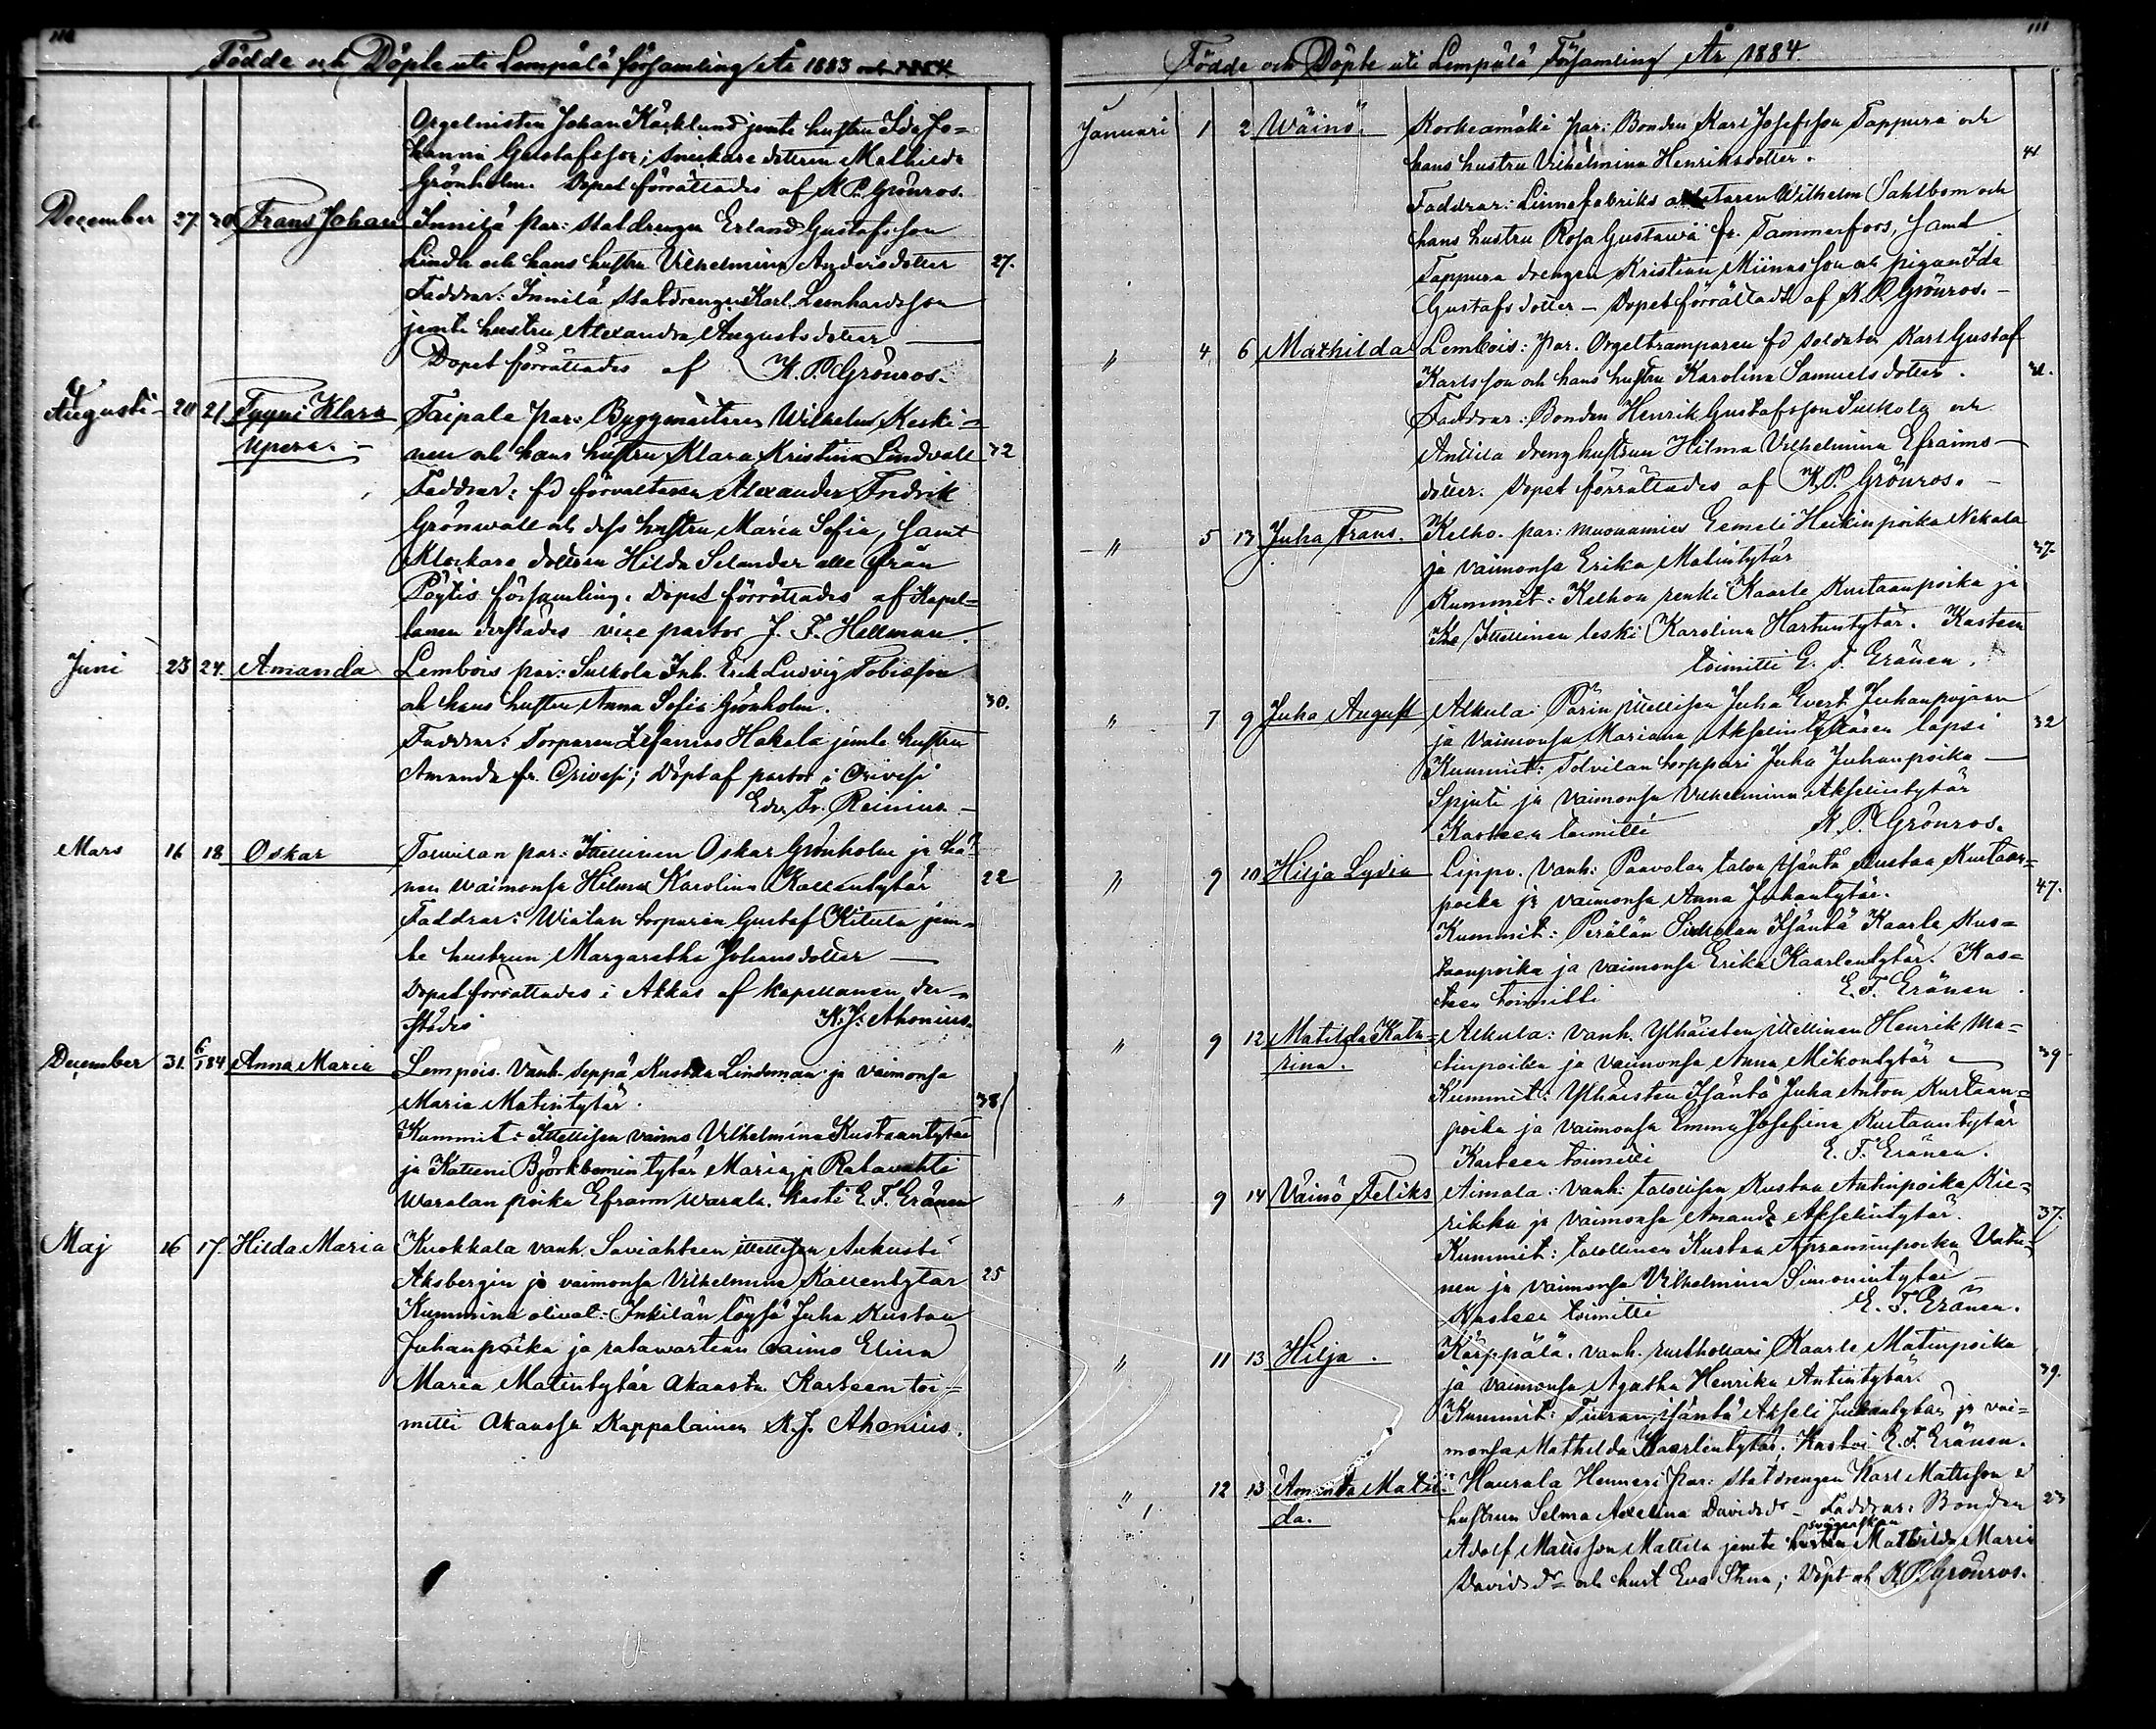 110
Födde och Döpte uti Lempälä församling År 1883 och 1884
Orgelnisten Johan Käcklund jemte hustru Ida Jo=
hanna Gustafsson; snickare dottern Mathilda
Grönholm. Dopet förrättades af K. P. Grönros.
December 27. 30 Frans Johan Innilä par: Statdrengen Erland Gustafsson
Lindh och hans hustru Vilhelmina Andersdotter 27.
Faddrar: Innilä Statdrengen Karl Leonhardsson
jemte hustru Alexandra Augustsdotter
Dopet förrättades af K. P. Grönros.
Augusti 20 21 Tyyni Klara Taipale par: Byggmästaren Wilhelm Keski=
nen och hans hustru Klara Kristina Lindvall 32
Faddrar: fd förvaltaren Alexander Fredrik
Grönwall och dess hustru Maria Sofia, samt
Klockare dottren Hilda Selander alle från
Pöytis församling. Dopet förrättades af Kapel=
lanen derstädes vice pastor J. F. Hellman.
Juni 23 24. Amanda Lembois par: Sulkola Inh. Erik Ludvig Tobiasson
och hans hustru Anna Sofia Grönholm. 30.
Faddrar: Torparen Zefanias Hakala jemte hustru
Amanda fr. Orivesi; Döpt af pastor i Orivesi
Edv. Fr. Reinius.
Mars 16 18 Oskar par: Itsellinen Oskar Grönholm ja hä=
nen waimonsa Hilma Karolina Kallentytär 22
Faddrar: torparen Gustaf Kitula jem=
te hustrun Margaretha Johansdotter
Dopet förrättades i Akkas af kapellanen der=
städes K. J. Ahonius.
December 31. 6/1 84 Anna Maria Lempois. Vanh. Seppä Kustaa Lindeman ja vaimonsa
Maria Matintytär. 38
Kummit: Itsellisen vaimo Vilhelmina Kustaantytär
ja Björkbomin tytär Maria, ja Ratavahti
Waralan poika Efraim Warala. Kasti E. F. Eränen
Maj 16 17. Hilda Maria Kuokkala vanh. Saviahteen itsellisen Aukusti
Aksbergin ja vaimonsa Vilhelmina Kallentytär 25
Kummina olivat: Inkilän löysä Juha Kustaa
Juhanpoika ja ratawartian vaimo Elina
Maria Matintytär Akaasta. Kasteen toi=
mitti Akaassa Kappalainen K. J. Ahonius.
111
Födde och Döpte uti Lempälä Församling År 1884.
Januari 1 2 Wäinö. Korkeamäki par: Bonden Karl Josefsson Tappura och
hans hustru Vilhelmina Henriksdotter. 41
Faddrar: Linnefabriks arbetaren Wilhelm Sahlbom och
hans hustru Rosa Gustawa fr. Tammerfors, samt
Tappura drengen Kristian Miinasson och pigan Ida
Gustafsdotter — Dopet förrättade af K. P. Grönros.
" 4 6 Mathilda Lembois: par. Orgeltramparen fd soldaten Karl Gustaf
Karlsson och hans hustru Karolina Samuelsdotter.
Faddrar: Bonden Henrik Gustafsson Sulkola och
Anttila dreng hustrun Hilma Vilhelmina Efraims=
dotter. Dopet förrättades af K. P. Grönros.
" 5 13 Juha Frans. Kelho. par: muonamies Eemeli Heikinpoika Nekala
ja vaimonsa Erika Matintytär 37.
Kummit: Kelhon renki Kaarle Kustaanpoika ja
Itsellinen leski Karolina Kasteen
toimitti E. F. Eränen.
" 7 9 Juha August Alkula: Pärin itsellisen Juha Evert Juhanpojan
ja vaimonsa Mariana Akselin tyttären lapsi 32
Kummit: Tolvilan torppari Juha Juhanpoika
Spjuti ja vaimonsa Vilhelmina Akselintytär
Kasteen toimitti K. P. Grönros.
" 9 10 Hilja Lydia Lippo. Vanh: Paavolan talon isäntä Kustaa Kustaan=
poika ja vaimonsa Anna Juhantytär. 47.
Kummit: Perälän Sulkolan Isäntä Kaarle Kus=
taanpoika ja vaimonsa Erika Kaarlentytär. Kas=
teen toimitti E. F. Eränen
" 9 12 Matilda Kata= Alkula: vanh. Ylhäisten itsellinen Henrik Ma=
rina. tinpoika ja vaimonsa Anna Mikontytär 39
Kummit: Ylhäisten Isäntä Juha Anton Kustaan=
poika ja vaimonsa Emma Josefina Kustaantytär
Kasteen toimitti E. F. Eränen.
" 9 14 Väinö Feliks Aimala: Vanh: talollisen Kustaa Antinpoika Kie=
rikka ja vaimonsa Amanda Akselintytär. 37.
Kummit: talollinen Kustaa Apraminpoika
nen ja vaimonsa Vilhelmina Simonintytär
Kasteen toimitti E. F. Eränen.
" 11 13 Hilja. Käppälä. Vanh. rusthollari Kaarle Matinpoika
ja vaimonsa Agatha Henrika Antintytär. 39.
Kummit: isäntä Akseli ja vai=
monsa Mathilda Kaarlentytär; Kastoi E. F. Eränen.
" 12 13 Amanda Matil= Haurala Henneri par: statdrengen Karl Mattsson o
da. hustrun Selma Adelina Davidsdr — Faddrar: Bonden 23
Adolf Mattsson Mattila jemte svägerskan Mathilda Maria
Davidsdr och hust Eva Stina; Döpt af K. P. Grönros.